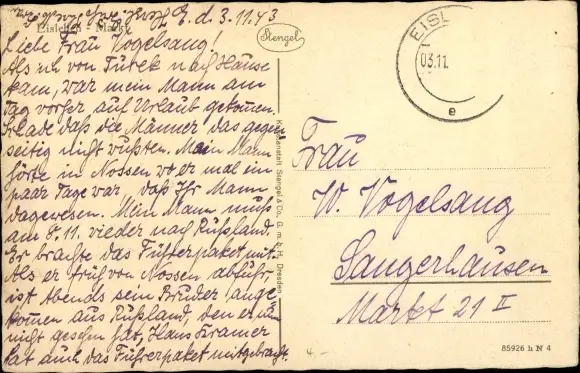 E. d. 3.11.43
Eisleben - Markt
Liebe Frau Vogelsang!
Als ich von Turek nach Hause
kam, war mein Mann am
Tag vorher auf Urlaub gekommen.
Schade daß die Männer das gegen
seitig nicht wußten. Mein Mann
hörte in Nossen wo er mal ein
paar Tage war, daß Ihr Mann
dagewesen. Mein Mann muß
am 8.11. wieder nach Rußland.
Er brachte das Führerpaket mit.
Als er früh von Nossen abfuhr
ist Abends sein Bruder ange
kommen aus Rußland, den er nun
nicht gesehen hat, Hans Kramer
hat auch das Führerpaket mitgebracht.
Stengel
Kunstanstalt Stengel & Co., G. m. b. H., Dresden
EISL
03.11.
e
Frau
W. Vogelsang
Sangerhausen
Markt 21 II
85926 h N 4